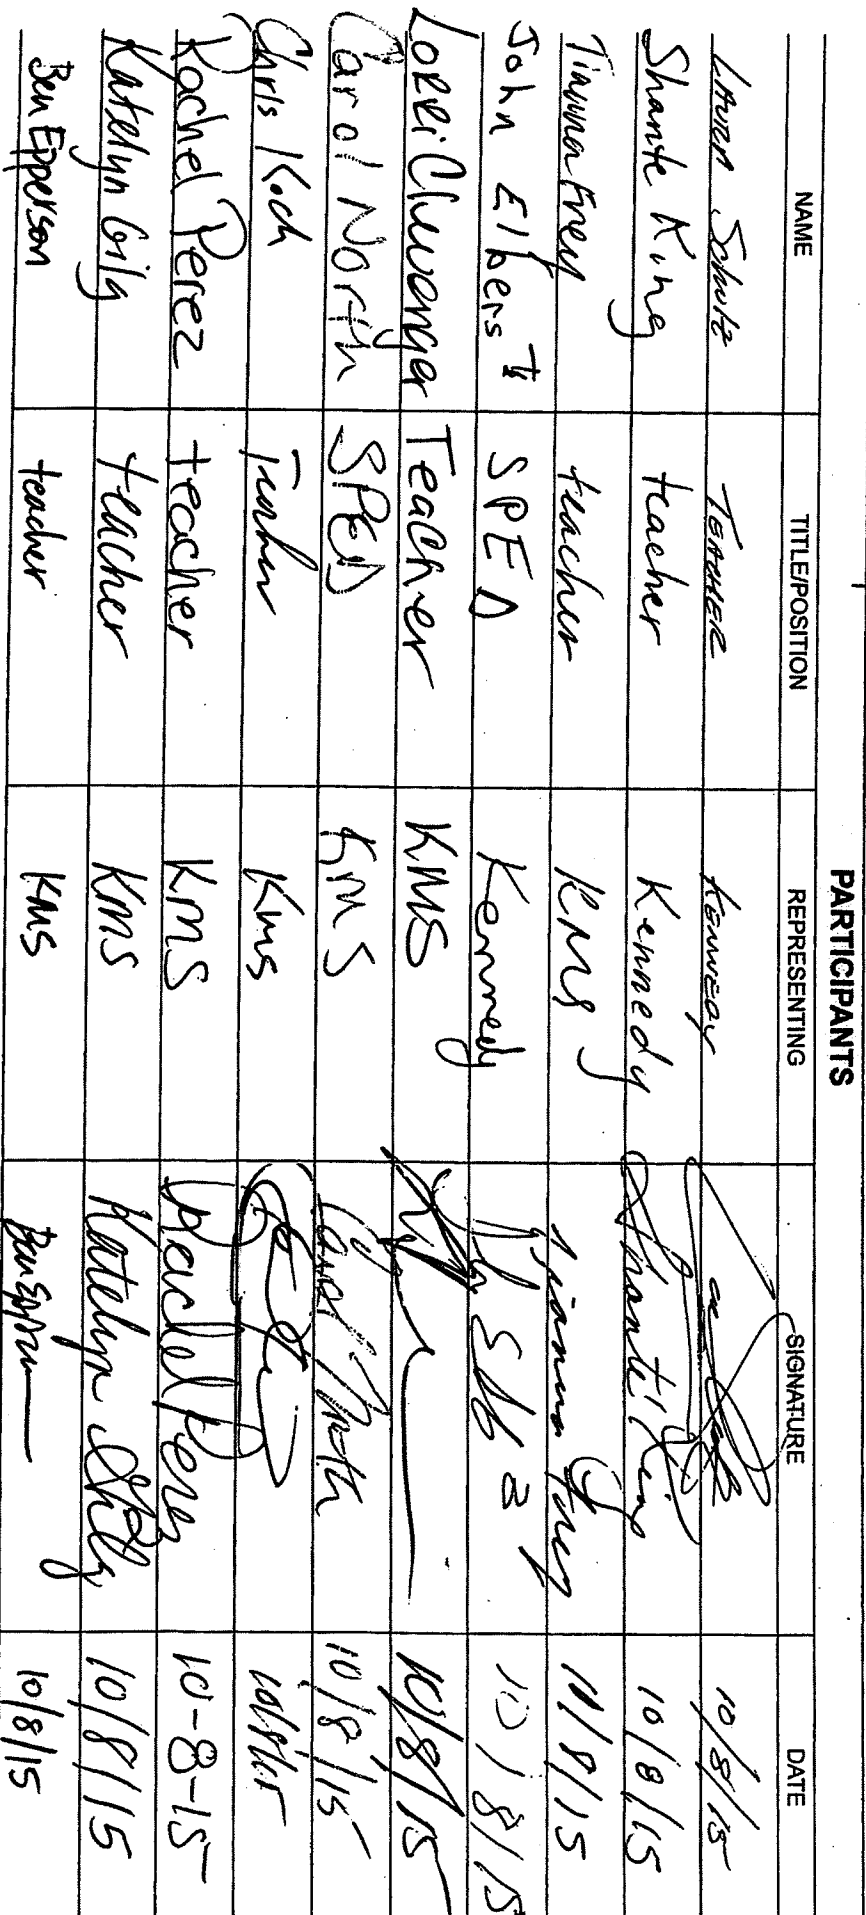 PARTICIPANTS
NAME TITLE/POSITION REPRESENTING SIGNATURE DATE
Laura Schutz TEACHER KENNEDY 10/8/15
Shante King teacher Kennedy Shante King 10/8/15
Tianna Frey teacher KMS Tianna Frey 10/8/15
John Elbers SPED Kennedy 10/8/15
LORRi Teacher KMS 10/8/15
Carol North SPED KMS Carol North 10/8/15
Chris Koch Teacher KMS 10/8/15
Rachel Perez teacher KMS Rachel Perez 10-8-15
Katelyn teacher KMS Katelyn 10/8/15
Ben Epperson teacher KMS Ben Epperson 10/8/15